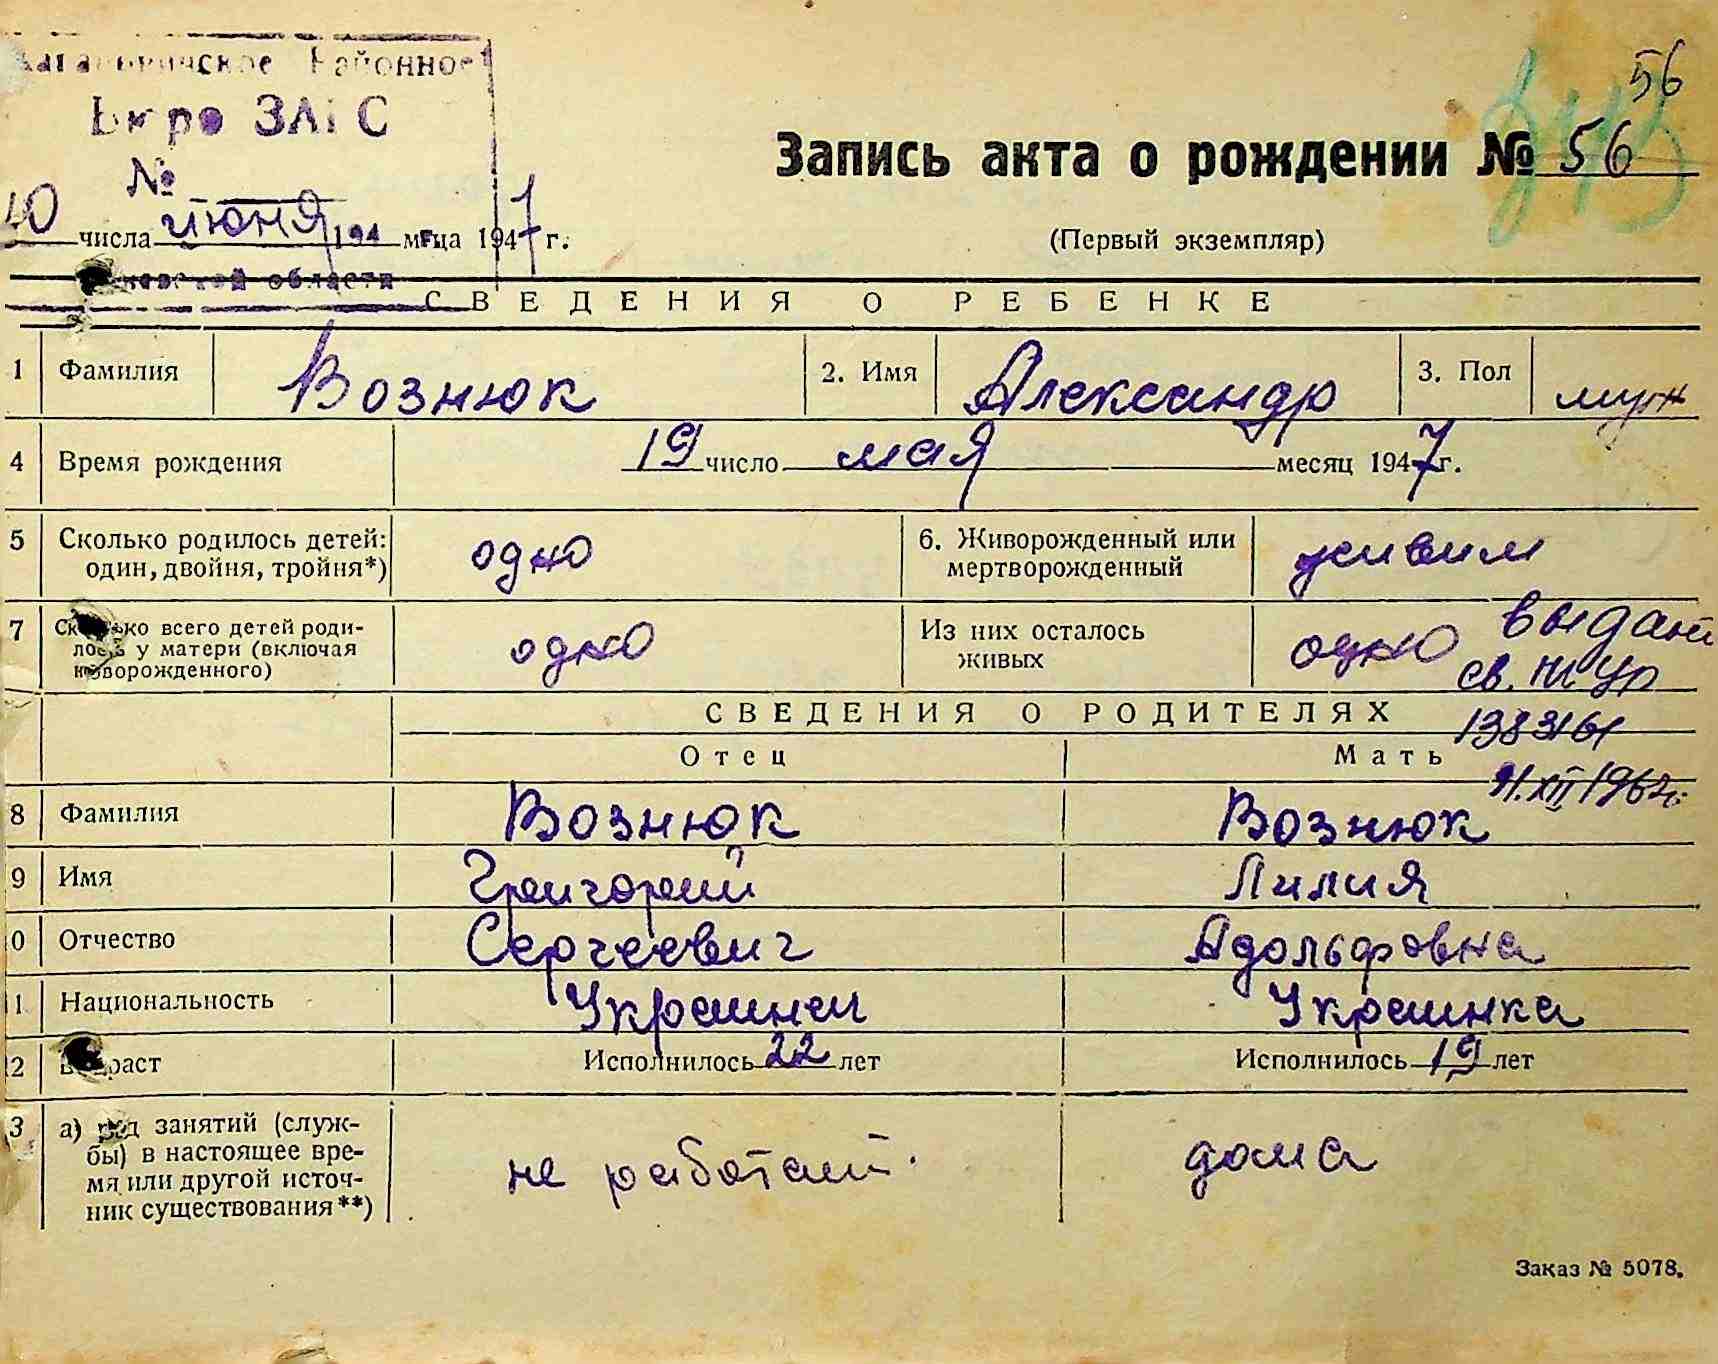 Районное
Бюро ЗАГС
№
194 г.
области
56
Запись акта о рождении № 56
10 числа июня м-ца 1947 г.
(Первый экземпляр)
СВЕДЕНИЯ О РЕБЕНКЕ
1 Фамилия Вознюк 2. Имя Александр 3. Пол муж
4 Время рождения 19 число мая месяц 1947 г.
5 Сколько родилось детей: один, двойня, тройня*) одно 6. Живорожденный или мертворожденный живим
7 Сколько всего детей родилось у матери (включая новорожденного) одно Из них осталось живых одно
выдано
св.
СВЕДЕНИЯ О РОДИТЕЛЯХ
1383161
Отец Мать
XII 1962г.
8 Фамилия Вознюк Вознюк
9 Имя Григорий Лилия
0 Отчество Сергеевич Адольфовна
1 Национальность Украинец Украинка
2 Возраст Исполнилось 22 лет Исполнилось 19 лет
3 а) род занятий (служ-
бы) в настоящее вре-
мя или другой источ-
ник существования**) не работает. дома
Заказ № 5078.